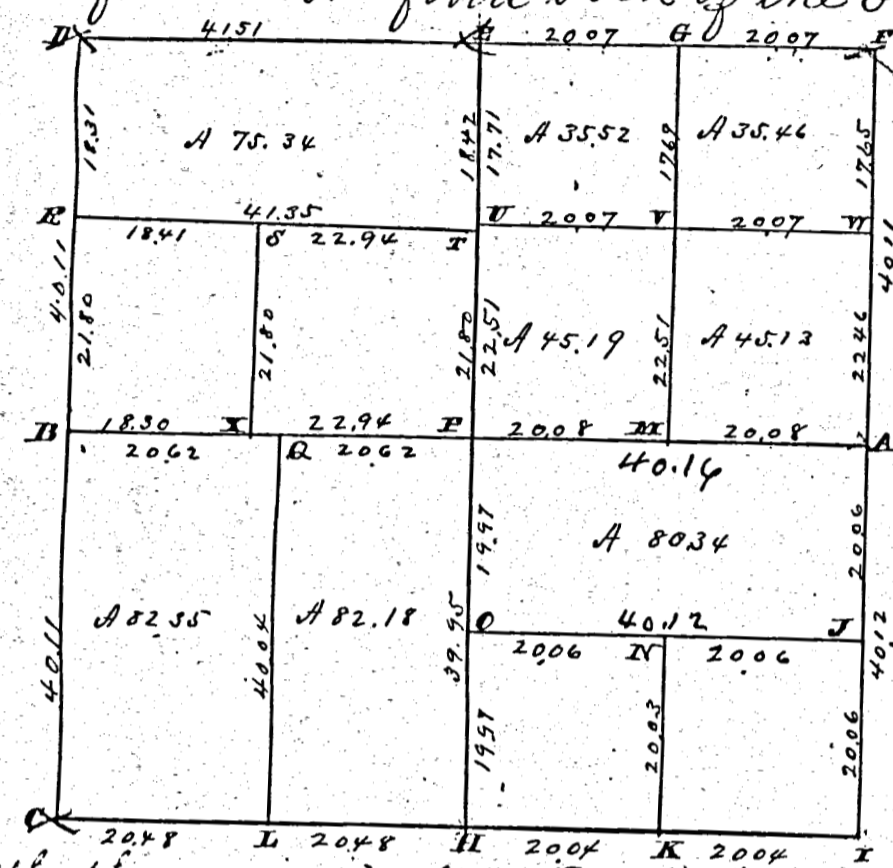 of the
D 41.51 E 20.07 G 20.07 F
18.31 A 75.34 18.42 17.71 A 35.52 17.69 A 35.46 17.65
R 41.35 U 20.07 V 20.07 W
18.41 S 22.94 T
40.11 21.80 21.80 21.80 22.51 A 45.19 22.51 A 45.13 22.46 40.11
B 18.30 X 22.94 P 20.08 M 20.08 A
20.62 Q 20.62 40.16
19.97 A 80.34 20.06
A 82.35 A 82.18 O 40.12 J
40.11 40.04 39.95 20.06 N 20.06 40.12
19.97 20.03 20.06
C 20.48 L 20.48 H 20.04 K 20.04 I